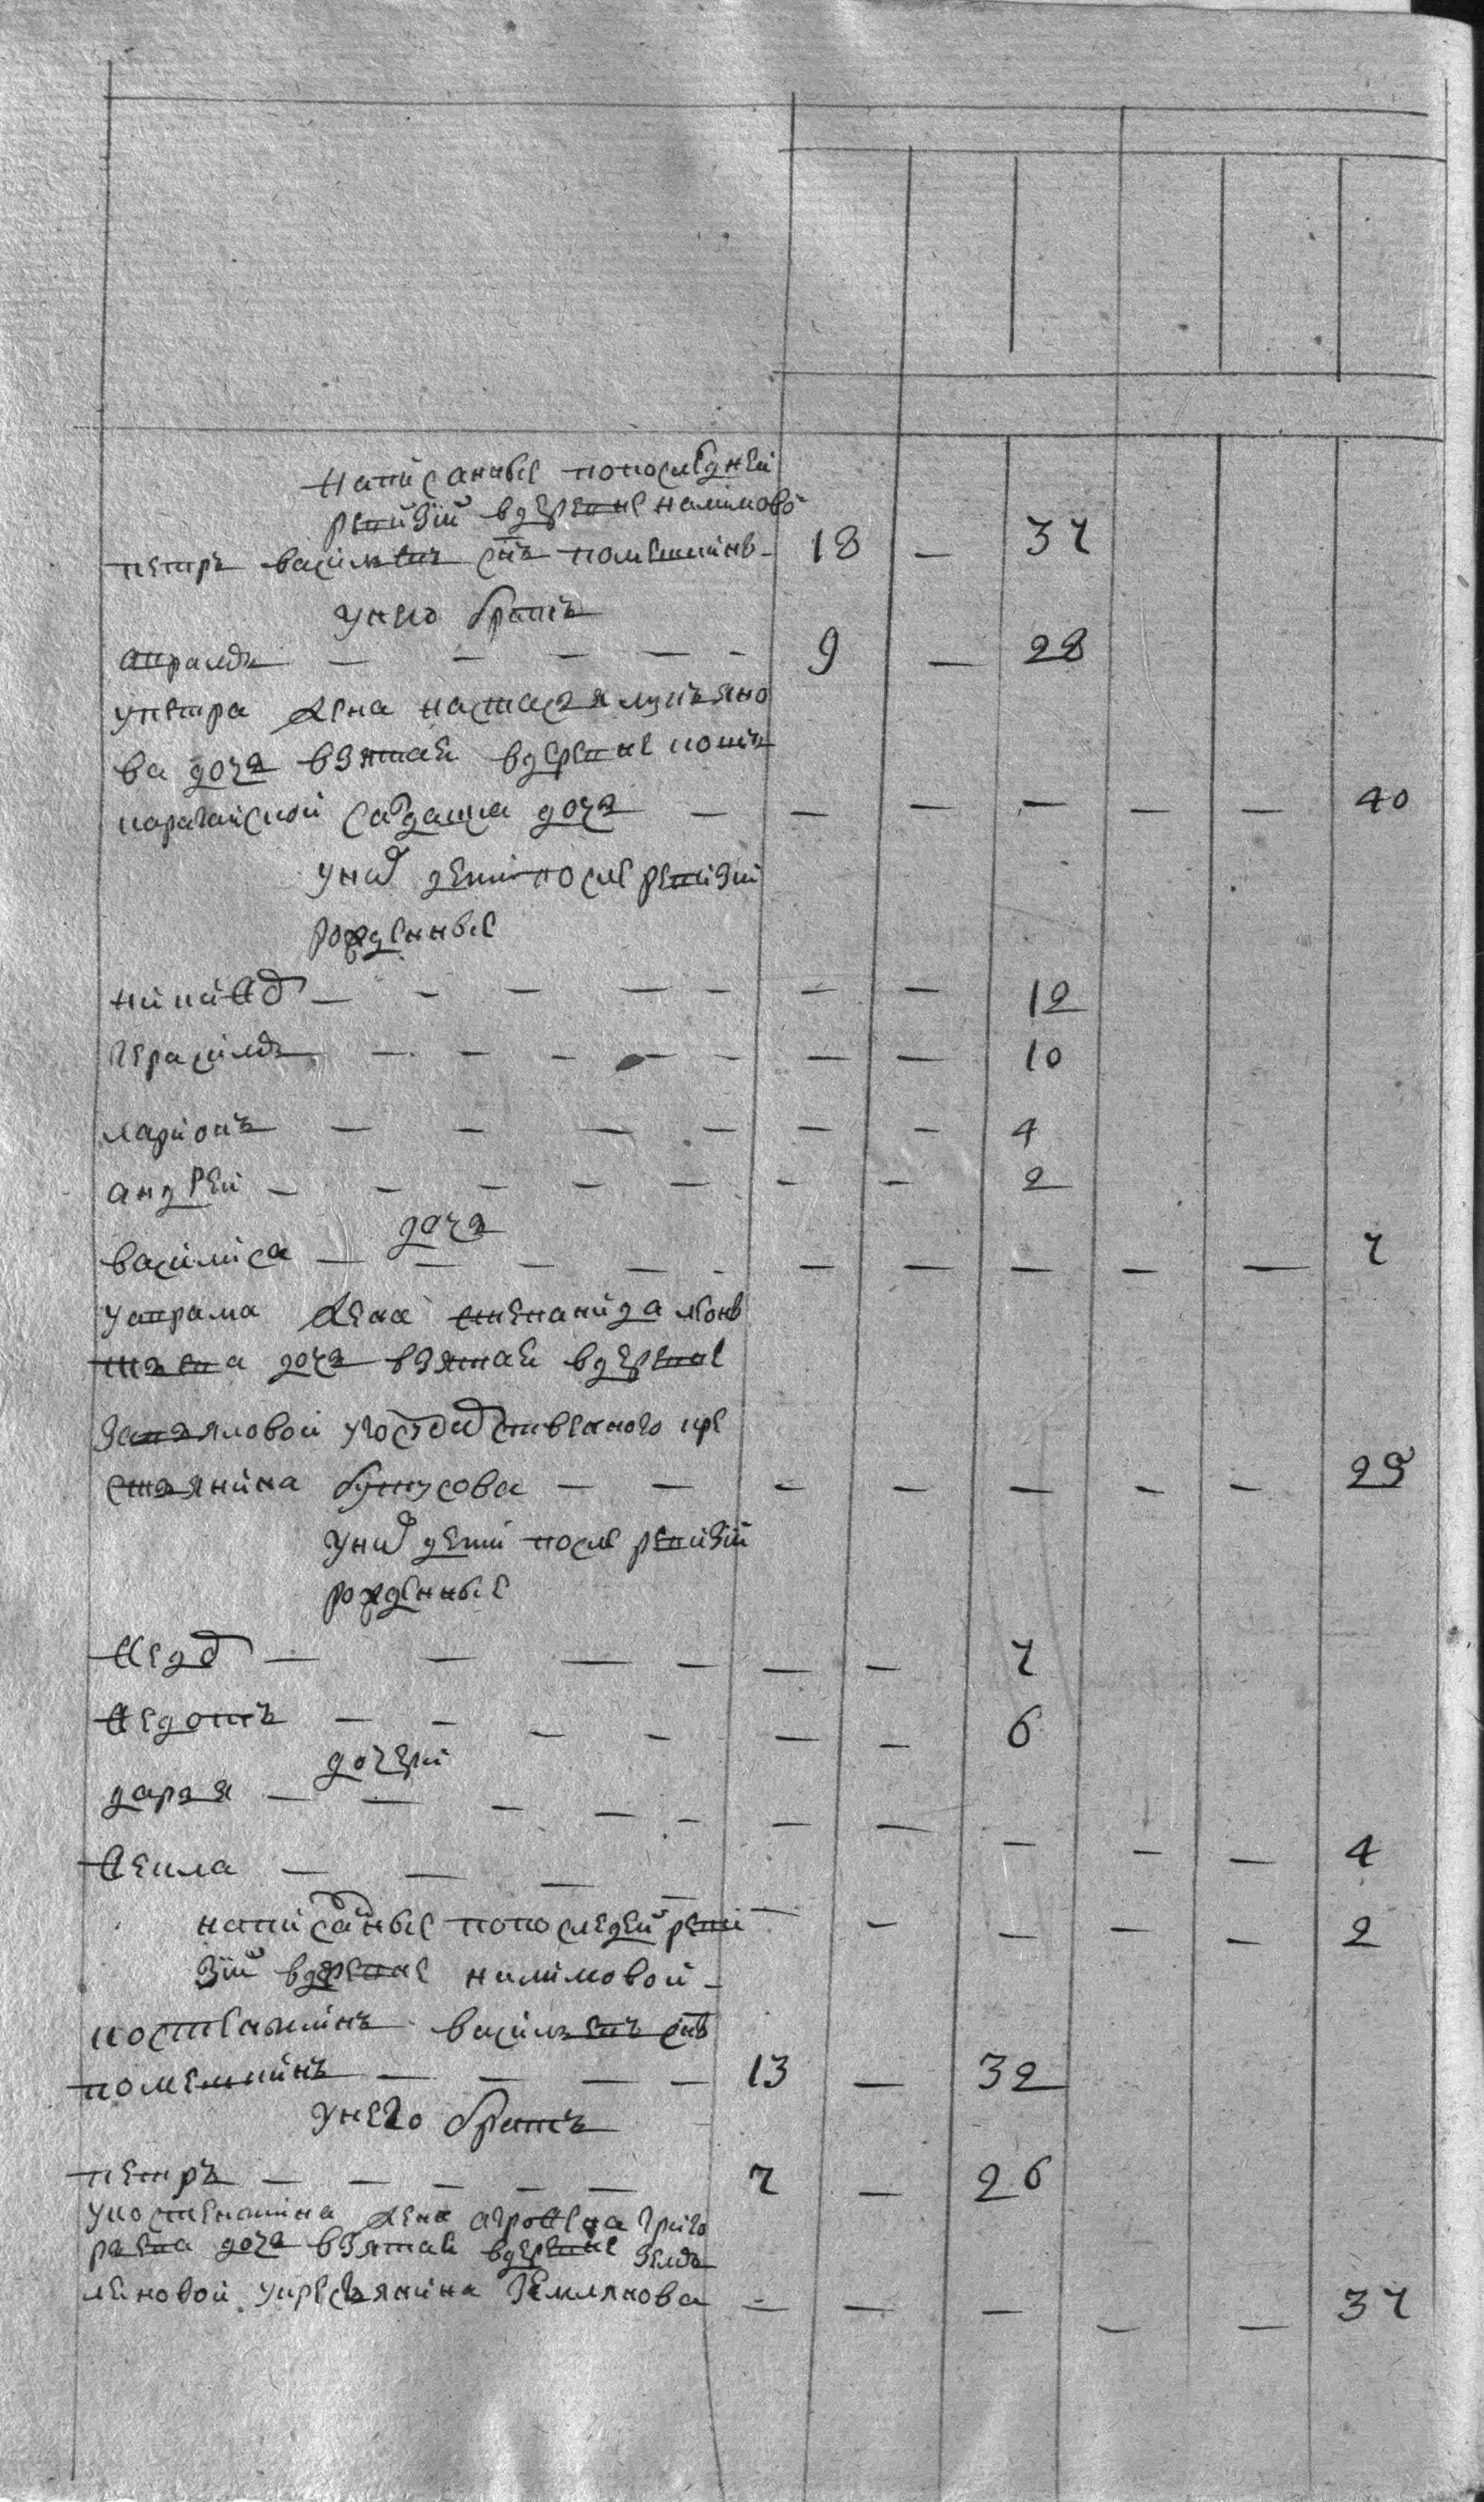 написанныя попоследней
ревизии вдеревне налимово
петръ васильевъ снъ полешинъ 18 — 37
унего братъ
аврамъ — — — — — 9 — 28
упетра жена настасья лукьяно
ва дочь взятая вдеревне
карагайской дочь — — — — — — 40
уних дети после ревизии
рожденные
никифор — — — — — — — 12
герасимъ — — — — — — — 10
ларионъ — — — — — — 4
андрей — — — — — — — 2
дочь
василиса — — — — — — — — — — 7
уаврама жена степанида леонъ
тьева дочь взятая вдеревне
запьяловой угосударственного кре
стьянина — — — — — — — 29
уних дети после ревизии
рожденные
федор — — — — — — 7
федотъ — — — — — — 6
дочери
дарья — — — — — — — — — — 4
фекла — — — — — — — — — 2
написанные попоследней реви
зии вдеревне налимовой
костентинъ васильевъ снъ
полешинъ — — — — 13 — 32
унего братъ
петръ — — — — — 7 — 26
укостентина жена агрофена григо
рьева дочь взятая вдеревне
укрестьянина землянова — — — — — 37